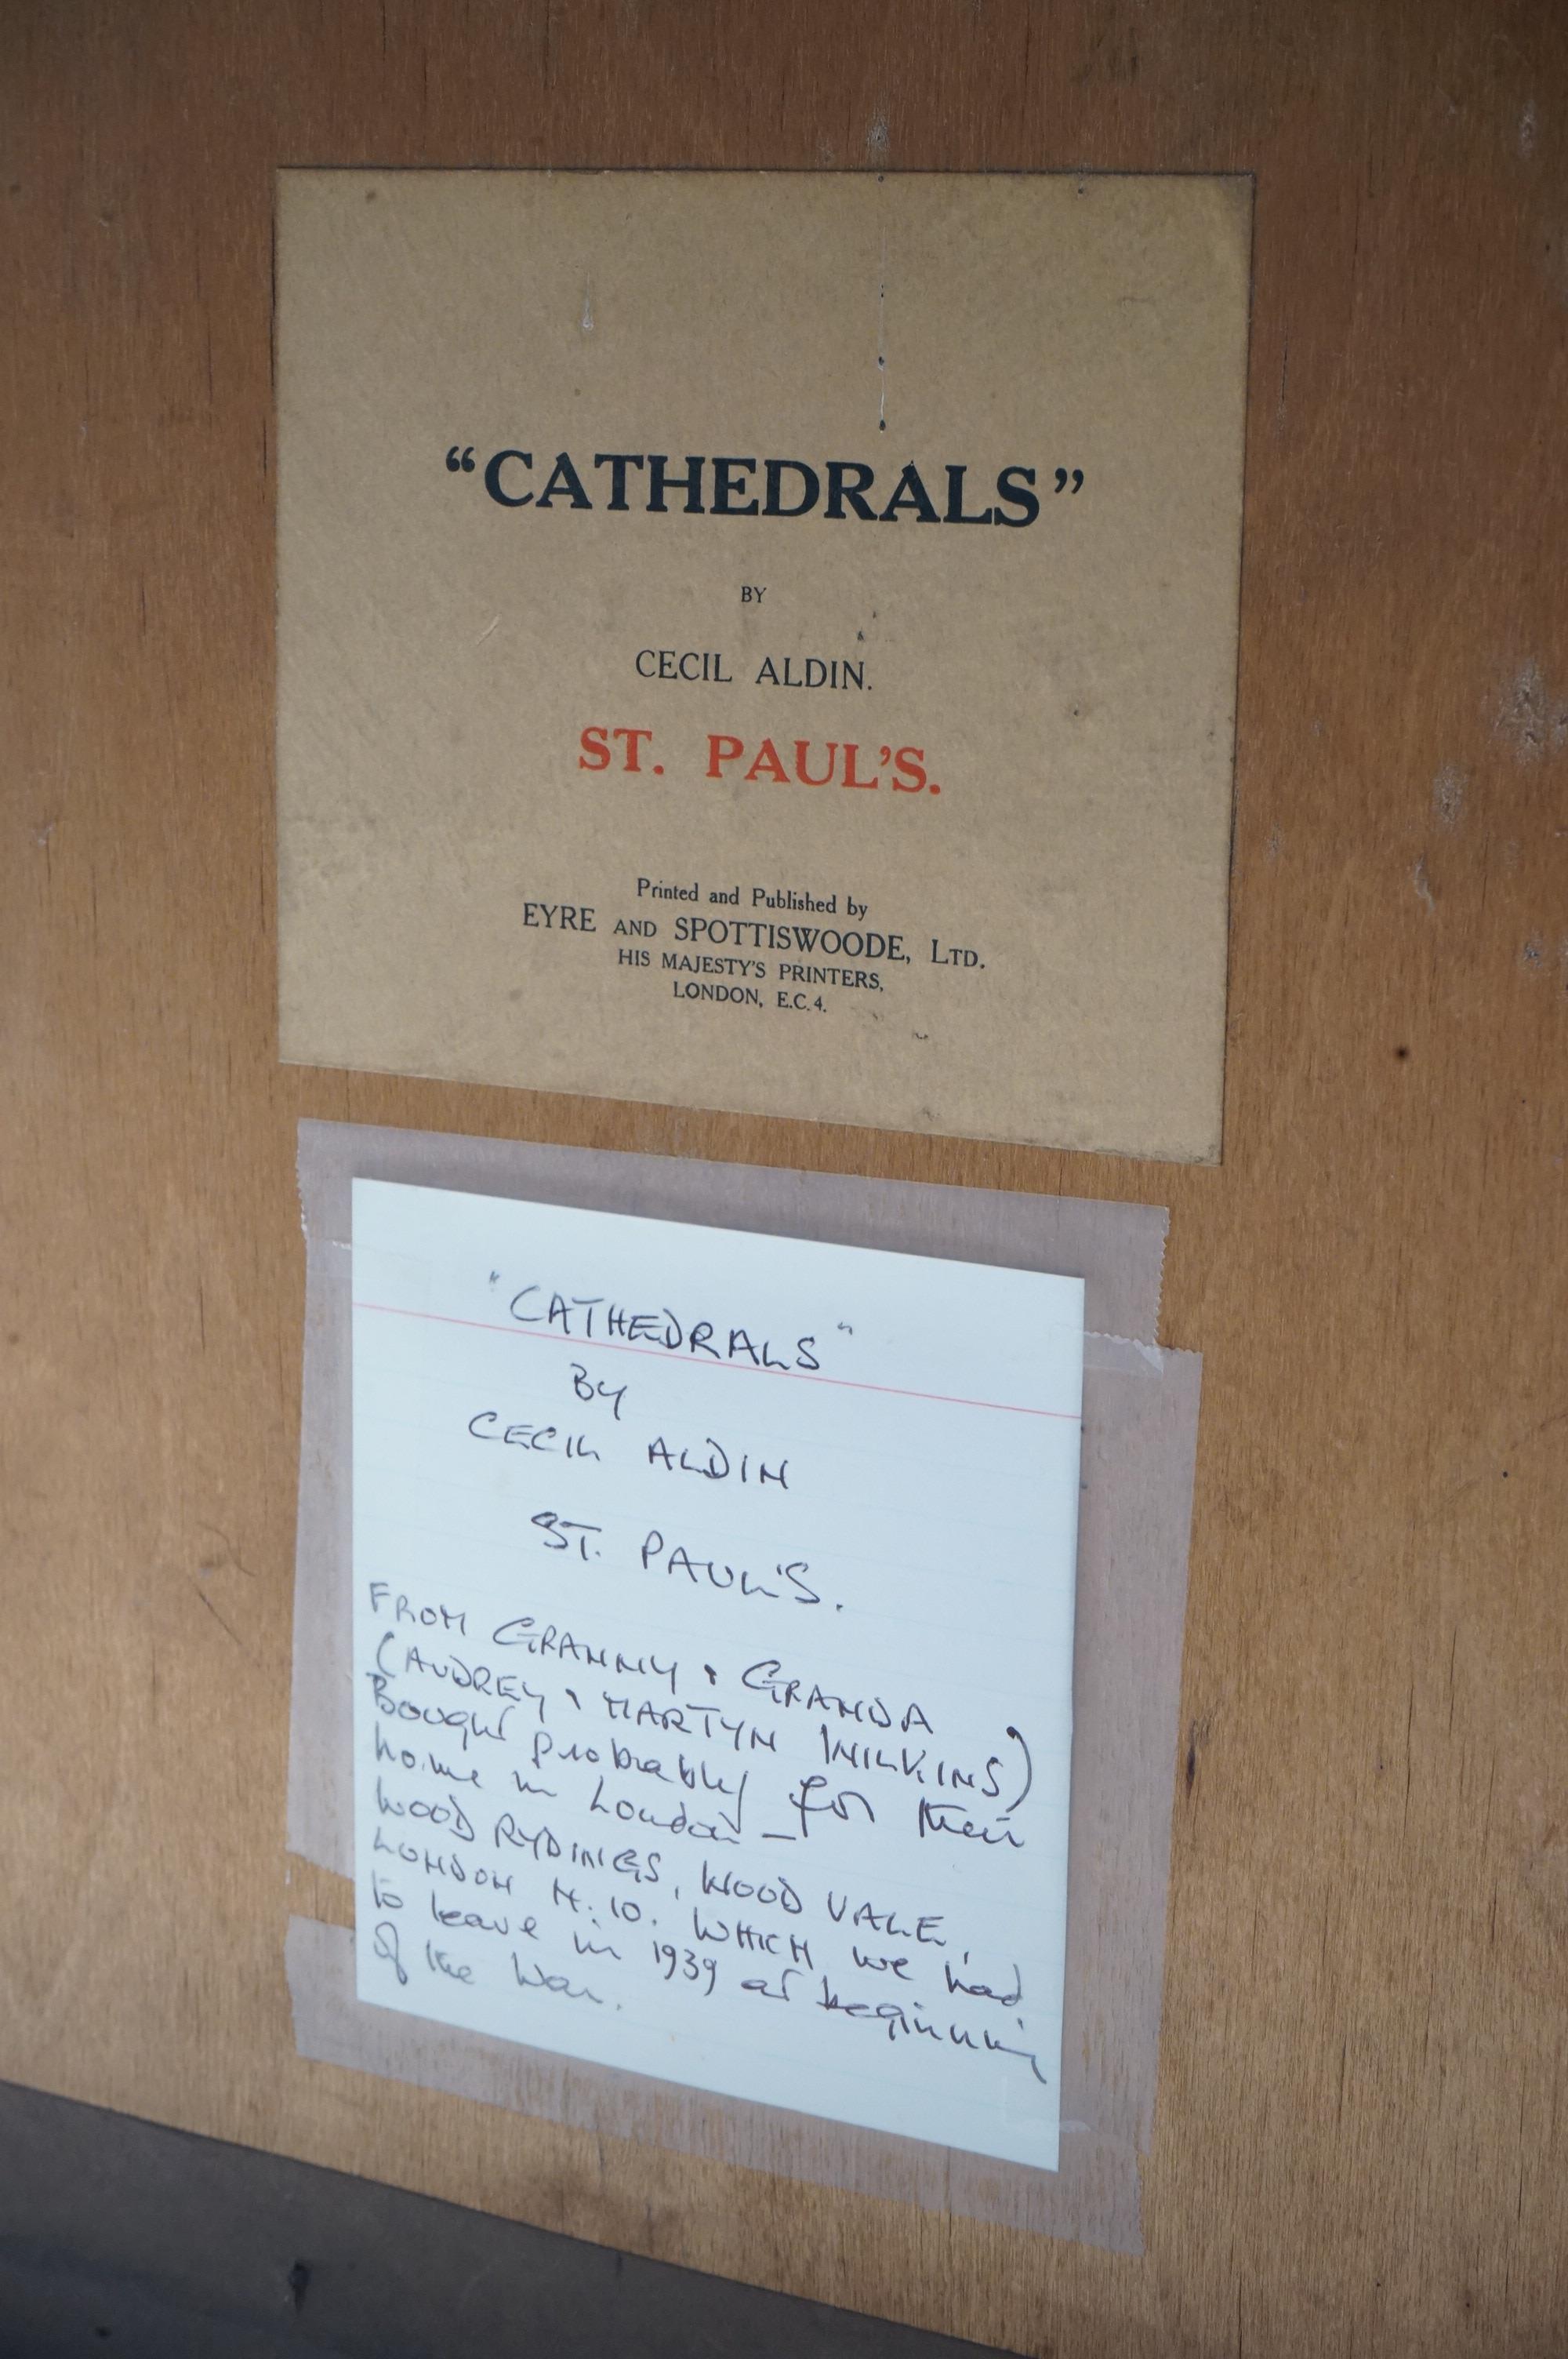 “CATHEDRALS”
BY
CECIL ALDIN.
ST. PAUL'S.
Printed and Published by
EYRE AND SPOTTISWOODE, LTD.
HIS MAJESTY'S PRINTERS,
LONDON, E.C.4.
"CATHEDRALS"
BY
CECIL ALDIN
ST. PAUL'S.
FROM GRANNY & GRANDA
(AUDREY & MARTYN WILKINS)
Bought probably for their
home in London –
WOOD RYDINGS, WOOD VALE,
LONDON N.10. WHICH we had
to leave in 1939 at beginning
of the War.